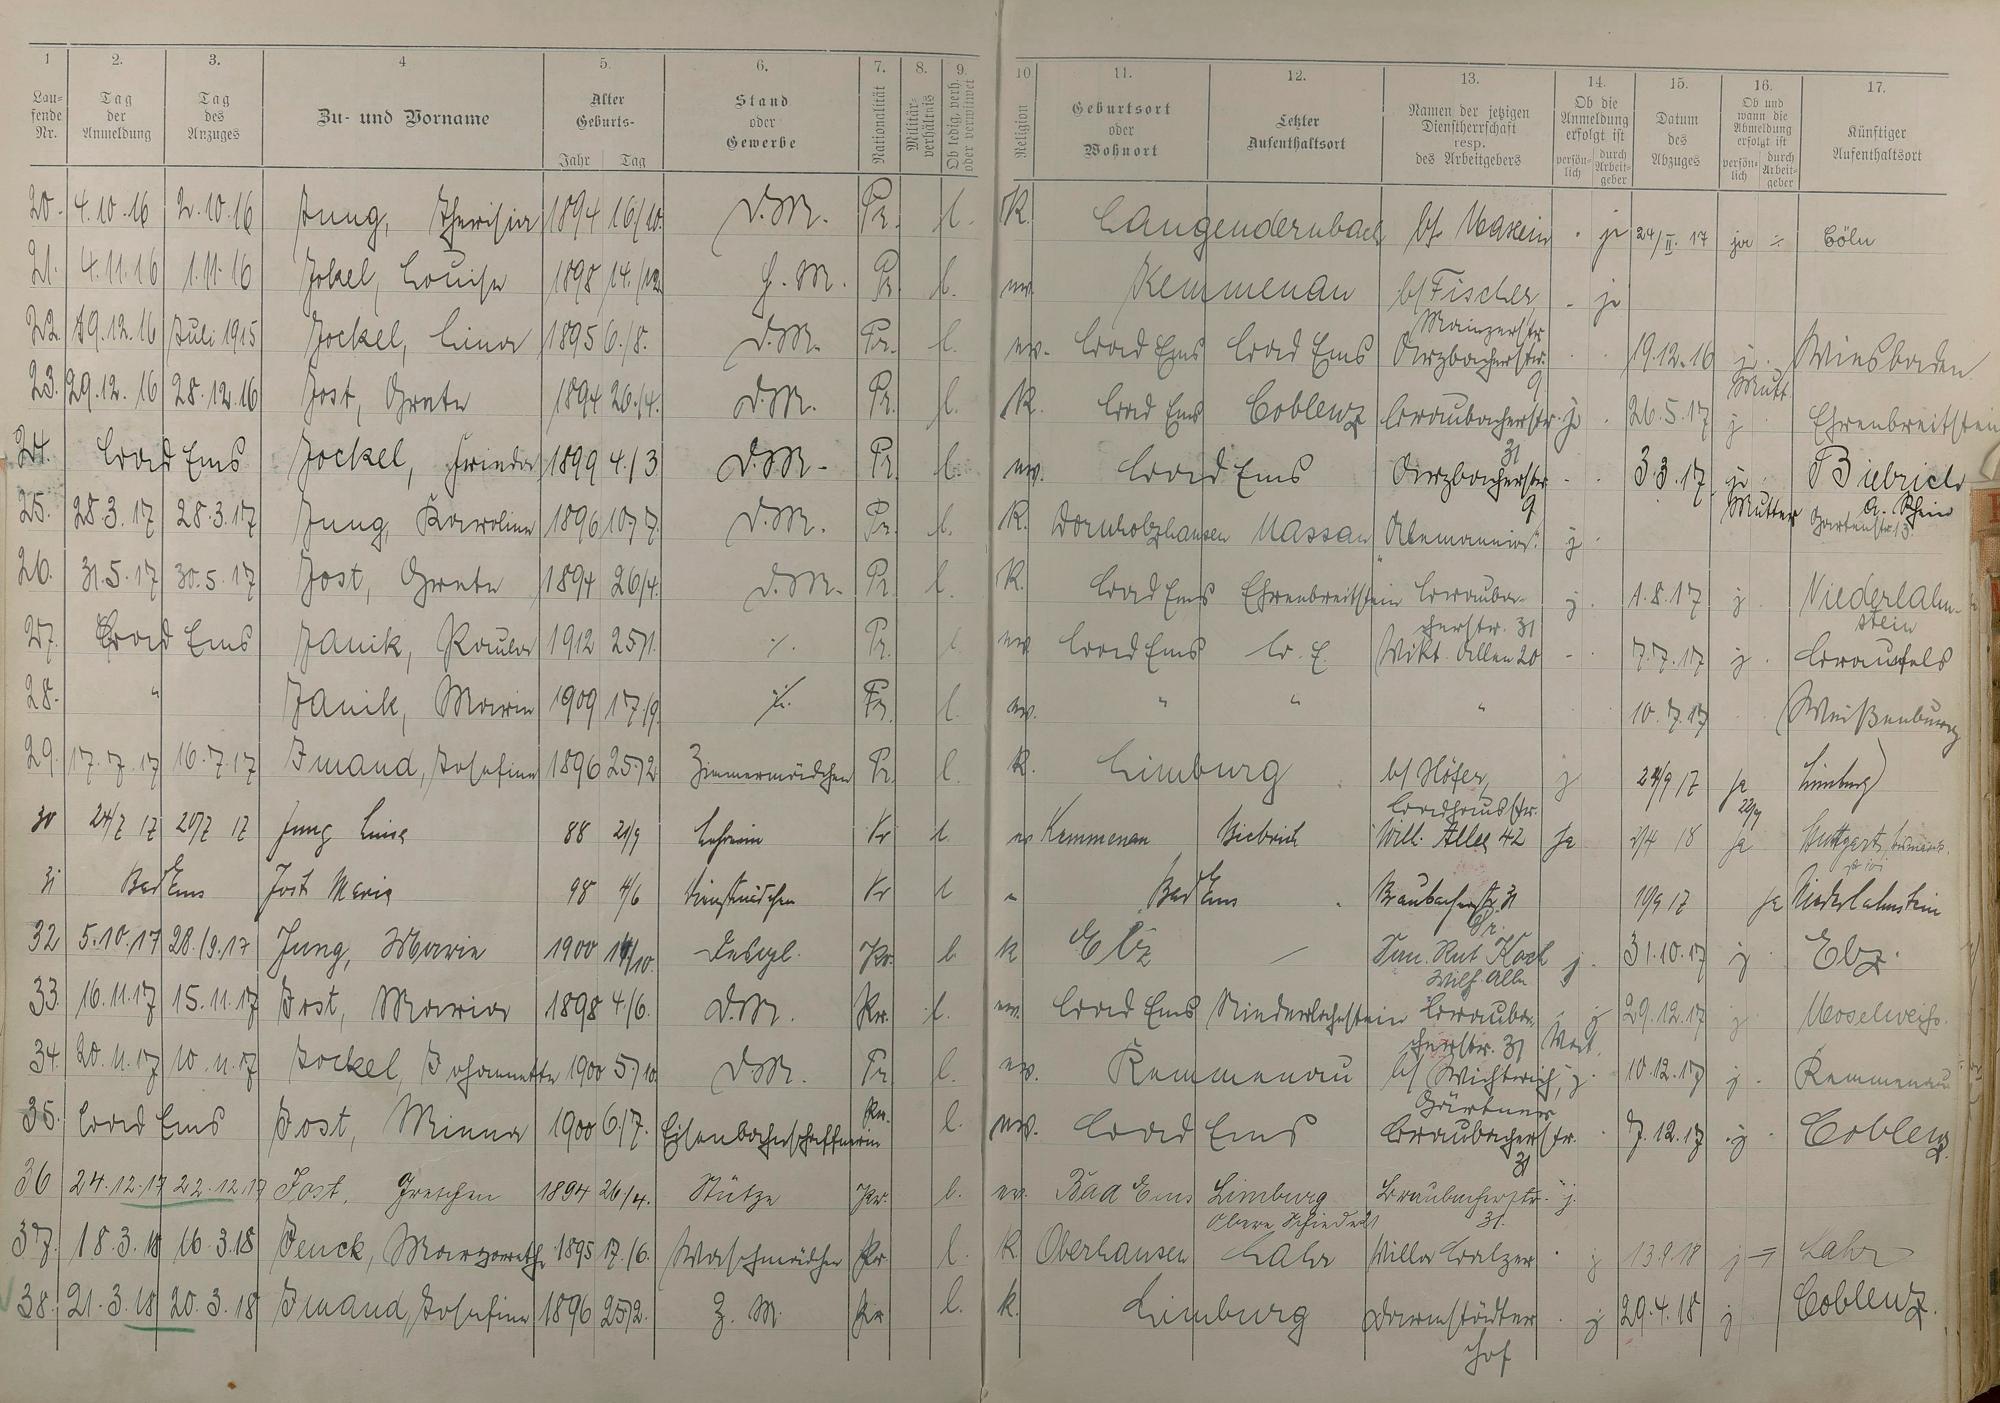 1 2. 3. 4 5. 6. 7. 8. 9. 10. 11. 12. 13. 14. 15. 16. 17.
Lau-fende Nr. Tag der Anmeldung Tag des Anzuges Zu- und Vorname Alter Geburts- Jahr Tag Stand oder Gewerbe Nationalität Militär-verhältnis Ob ledig, verh. oder verwitwet Religion Geburtsort oder Wohnort Letzter Aufenthaltsort Namen der jetzigen Dienstherrschaft resp. des Arbeitgebers Ob die Anmeldung erfolgt ist persön-lich durch Arbeit-geber Datum des Abzuges Ob und wann die Abmeldung erfolgt ist persön-lich durch Arbeit-geber Künftiger Aufenthaltsort
20. 4.10.16 2.10.16 Jung, Theresia 1894 16/10. D.M. Pr. l. K. Langendernbach b/ ja 24/II.17 ja = Cöln
21. 4.11.16 1.11.16 Jokel, Louise 1898 14./12 H.M. Pr. l. ev. Kemmenau b/ Fischer - ja
22. 19.12.16 Juli 1915 Jockel, Lina 1895 6./8. D.M. Pr. l. ev. Bad Ems Bad Ems Mainzerstr. Arzbacherstr. 9 19.12.16 j. Mutt. Wiesbaden
23. 29.12.16 28.12.16 Jost, Grete 1894 26./4. D.M. Pr. l. K. Bad Ems Coblenz Braubacherstr. 31 j. 26.5.17 j Ehrenbreitstein
24. Bad Ems Jockel, Frieda 1899 4./3 D.M. Pr. l. ev. Bad Ems Arzbacherstr. 9 - 3.3.17 ja Mutter Biebrich a. Rhein Gartenstr. 13.
25. 28.3.17 28.3.17 Jung, Karoline 1896 10/7. D.M. Pr. l. K. Dornholzhausen Nassau "Alemannia" j.
26. 31.5.17 30.5.17 Jost, Grete 1894 26/4. D.M. Pr. l. K. Bad Ems Ehrenbreitstein Braubacherstr. 31 j. 1.8.17 j. Niederlahnstein
27. Bad Ems Janik, Paula 1912 25/1. ./. Pr. l. ev. Bad Ems B.E. Vikt. Allee 20 - 7.7.17 j. Braunfels
28. " Janik, Marie 1909 17/9. ./. Pr. l. ev. " " " 10.7.17 Weißenburg
29. 17.7.17 16.7.17 Imand, Josefine 1896 25/2 Zimmermädchen Pr. l. K. Limburg b/ Höfer, Badhausstr. j 24/9 17 ja 22/9 Limburg
30 24/7 17 20/7 17 Jung Luise 88 21/9 Pr l ev Kemmenau Biebrich Wilh. Allee 42 Ja 2/4 18 ja Stuttgart
31 Bad Ems Jost Maria 98 4/6 Dienstmädchen Pr l " Bad Ems Braubacherstr. 31 19/9 17 ja Niederlahnstein
32 5.10.17 28./9.17 Jung, Marie 1900 14/10. Pr. l. k Elz — San. Rat Koch Wilh. Allee j. 31.10.17 j. Elz.
33. 16.11.17 15.11.17 Jost, Maria 1898 4./6. D.M. Pr. l. ev. Bad Ems Niederlahnstein Braubacherstr. 31 j 29.12.17 j. Moselweiß.
34. 20.11.17 10.11.17 Jockel, Johannette 1900 5./10. D.M. Pr l. ev. Kemmenau b/ Gärtner j. 10.12.17 j. Kemmenau
35. Bad Ems Jost, Minna 1900 6./7. Eisenbahnschaffnerin Pr. l. ev. Bad Ems Braubacherstr. 31 7.12.17 j. Coblenz.
36 24.12.17 22.12.17 Jost, Gretchen 1894 26/4. Stütze Pr. l. ev. Bad Ems Limburg Obere Schiede Braubacherstr. 31. j.
37. 18.3.18 16.3.18 Jenck, Margarethe 1895 17./6. Waschmädchen Pr. l. K. Oberhausen Lahr Villa Balzer j 13.9.18 j = Lahr
38. 21.3.18 20.3.18 Imand, Josefine 1896 25/2. Z.M. Pr l. k. Limburg Darmstädter Hof j 29.4.18 j Coblenz.